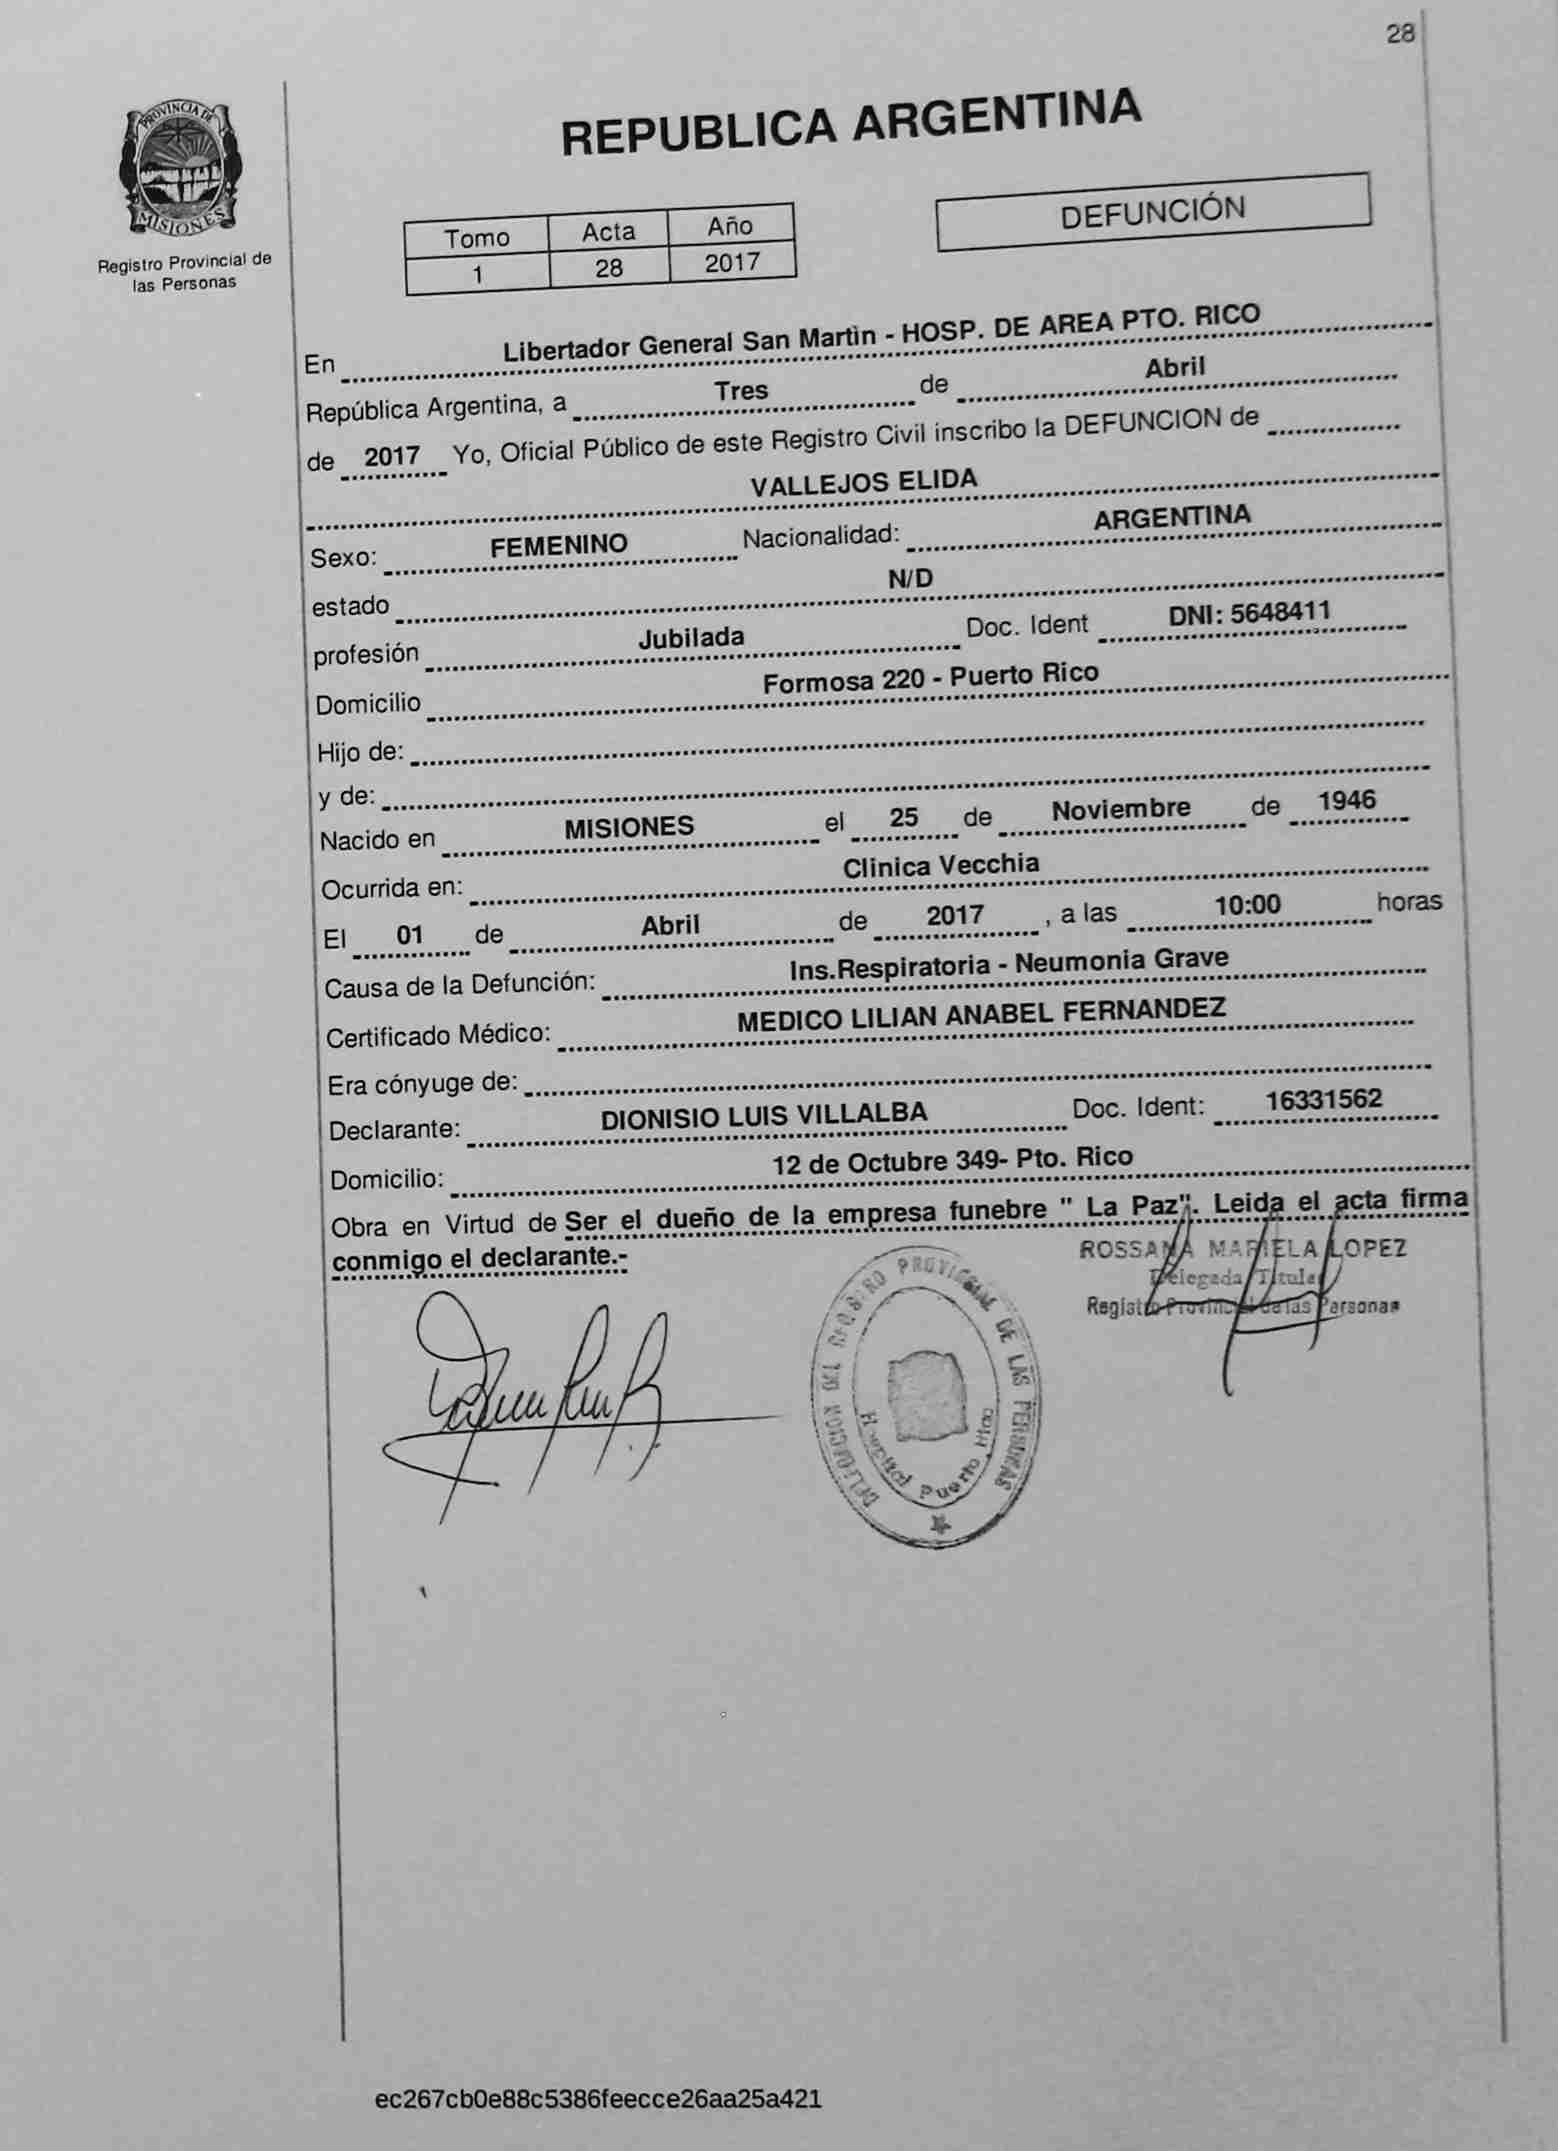 28
PROVINCIA DE
MISIONES
Registro Provincial de
las Personas
REPUBLICA ARGENTINA
Tomo Acta Año
1 28 2017
DEFUNCIÓN
En Libertador General San Martin - HOSP. DE AREA PTO. RICO
República Argentina, a Tres de Abril
de 2017 Yo, Oficial Público de este Registro Civil inscribo la DEFUNCION de
VALLEJOS ELIDA
Sexo: FEMENINO Nacionalidad: ARGENTINA
estado N/D
profesión Jubilada Doc. Ident DNI: 5648411
Domicilio Formosa 220 - Puerto Rico
Hijo de:
y de:
Nacido en MISIONES el 25 de Noviembre de 1946
Ocurrida en: Clinica Vecchia
El 01 de Abril de 2017 , a las 10:00 horas
Causa de la Defunción: Ins.Respiratoria - Neumonia Grave
Certificado Médico: MEDICO LILIAN ANABEL FERNANDEZ
Era cónyuge de:
Declarante: DIONISIO LUIS VILLALBA Doc. Ident: 16331562
Domicilio: 12 de Octubre 349- Pto. Rico
Obra en Virtud de Ser el dueño de la empresa funebre " La Paz". Leida el acta firma
conmigo el declarante.-
ROSSANA MARIELA LOPEZ
Delegada Titular
Registro Provincial de las Personas
DELEGACION DEL REGISTRO PROVINCIAL DE LAS PERSONAS
Hospital Puerto Rico
ec267cb0e88c5386feecce26aa25a421